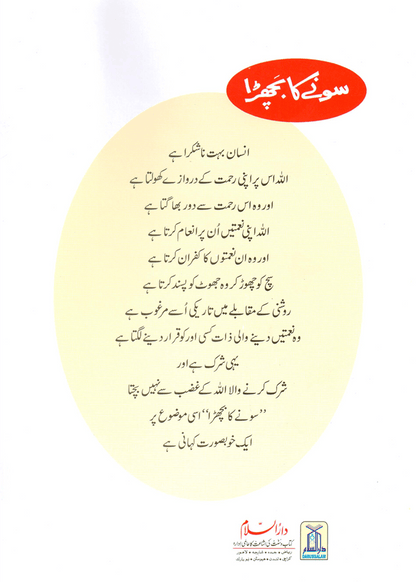 سونے کا بچھڑا
انسان بہت ناشکرا ہے
اللہ اس پر اپنی رحمت کے دروازے کھولتا ہے
اور وہ اس رحمت سے دور بھاگتا ہے
اللہ اپنی نعمتیں اُن پر انعام کرتا ہے
اور وہ ان نعمتوں کا کفران کرتا ہے
سچ کو چھوڑ کر وہ جھوٹ کو پسند کرتا ہے
روشنی کے مقابلے میں تاریکی اُسے مرغوب ہے
وہ نعمتیں دینے والی ذات کسی اور کو قرار دینے لگتا ہے
یہی شرک ہے اور
شرک کرنے والا اللہ کے غضب سے نہیں بچتا
”سونے کا بچھڑا“ اسی موضوع پر
ایک خوبصورت کہانی ہے
دارُالسلام
کتاب و سنت کی اشاعت کا عالمی ادارہ
دارالسلام
DARUSSALAM